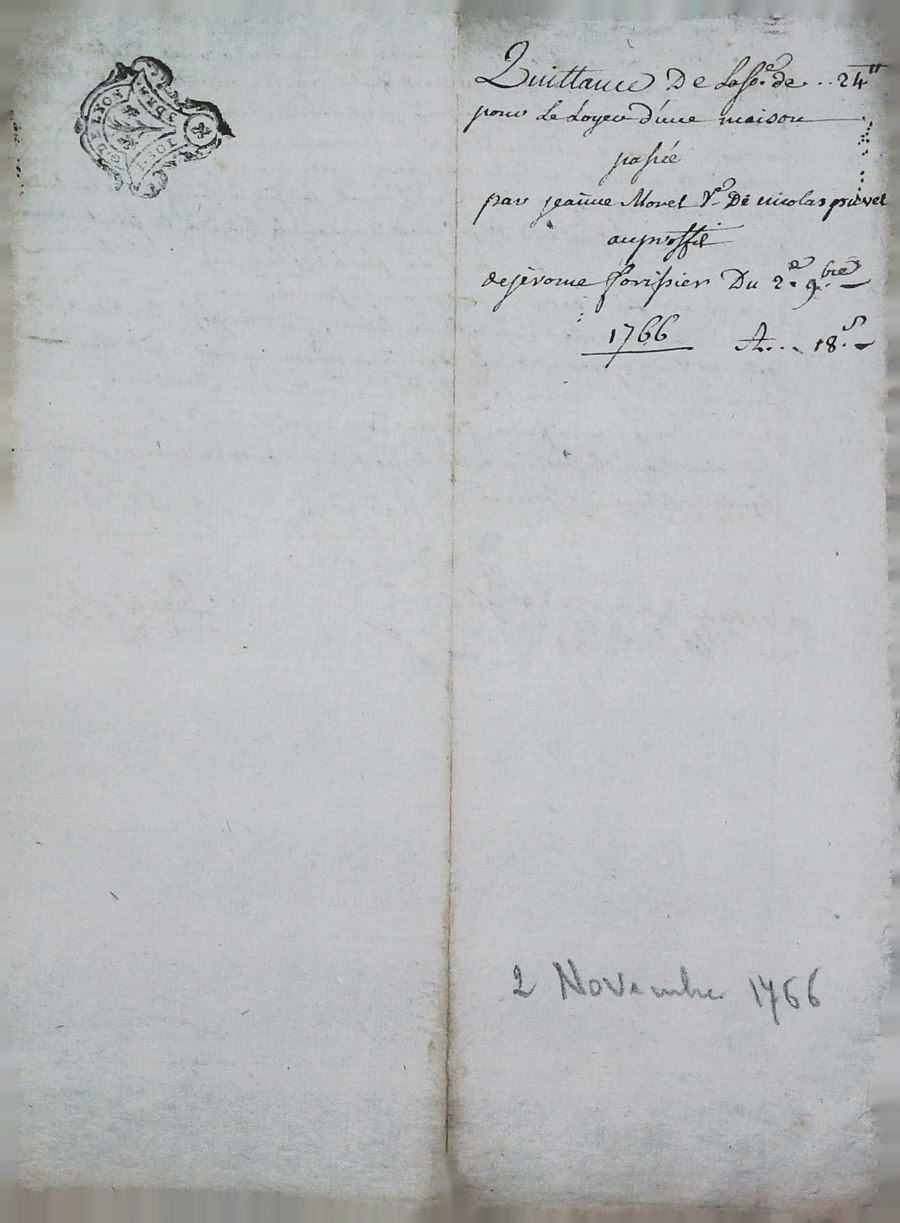 G. DE LYON
Quittance De La so.e de .. 24 ₶
pour Le Loyer d'une maison
passée
par jeanne Morel V.e De nicolas privet
au proffit
de jérome forissier Du 2.e 9.bre
1766 A... 18.s
2 Novembre 1766